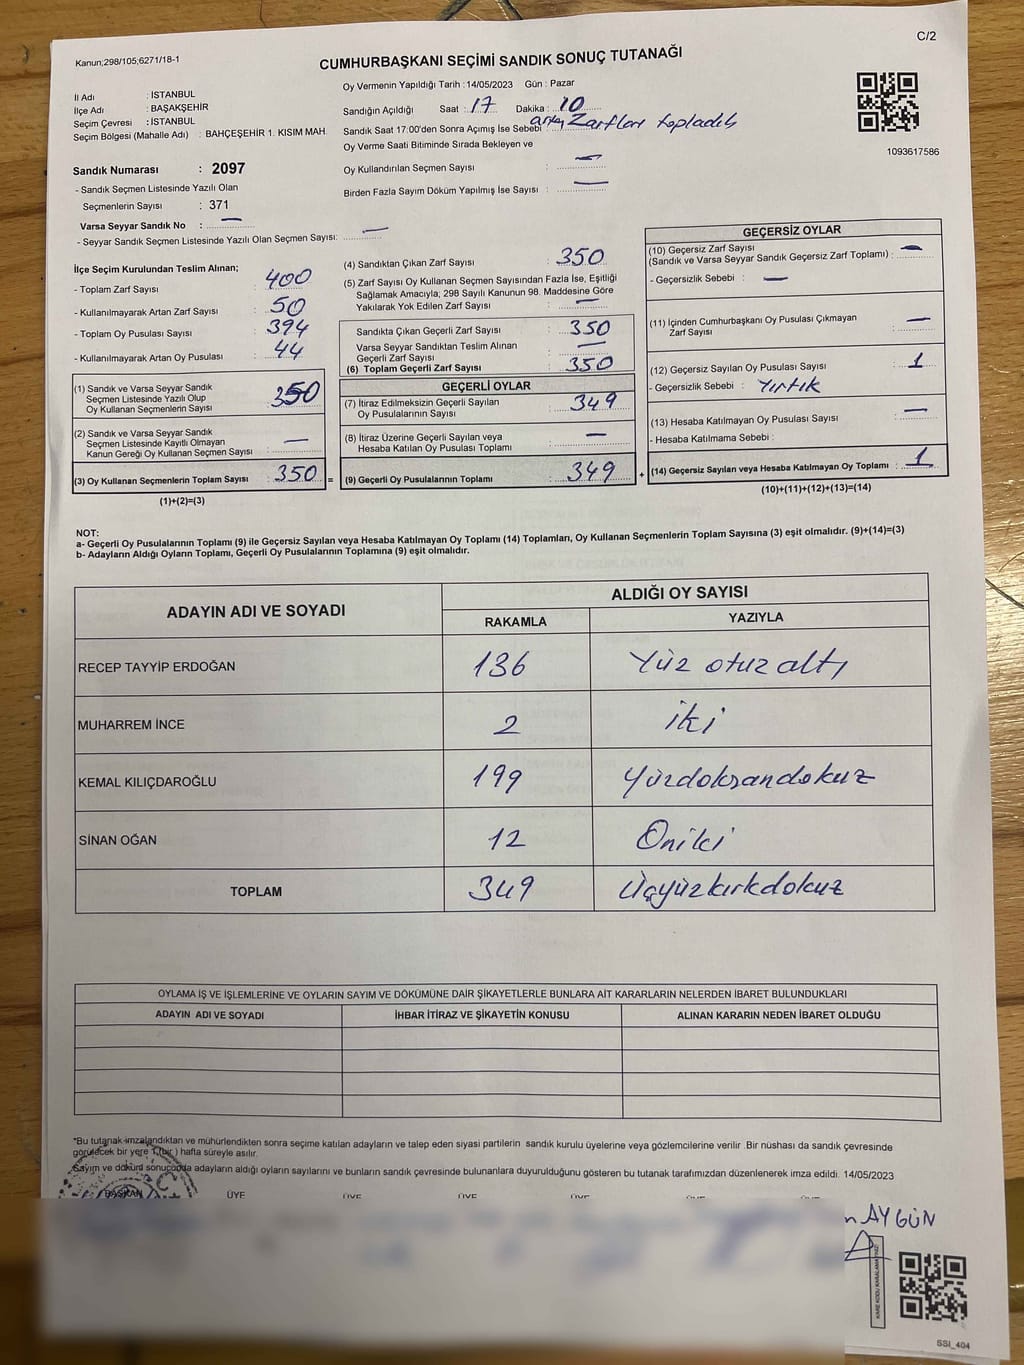 C/2
Kanun;298/105;6271/18-1
CUMHURBAŞKANI SEÇİMİ SANDIK SONUÇ TUTANAĞI
Oy Vermenin Yapıldığı Tarih : 14/05/2023 Gün : Pazar
İl Adı : İSTANBUL
İlçe Adı : BAŞAKŞEHİR
Seçim Çevresi : İSTANBUL
Seçim Bölgesi (Mahalle Adı) : BAHÇEŞEHİR 1. KISIM MAH.
Sandığın Açıldığı Saat : 17 Dakika : 10
Sandık Saat 17:00'den Sonra Açımış İse Sebebi : artış Zarfları topladık
Oy Verme Saati Bitiminde Sırada Bekleyen ve
Oy Kullandırılan Seçmen Sayısı : —
Birden Fazla Sayım Döküm Yapılmış İse Sayısı : —
1093617586
Sandık Numarası : 2097
- Sandık Seçmen Listesinde Yazılı Olan
Seçmenlerin Sayısı : 371
Varsa Seyyar Sandık No : —
- Seyyar Sandık Seçmen Listesinde Yazılı Olan Seçmen Sayısı: —
İlçe Seçim Kurulundan Teslim Alınan;
- Toplam Zarf Sayısı : 400
- Kullanılmayarak Artan Zarf Sayısı : 50
- Toplam Oy Pusulası Sayısı : 394
- Kullanılmayarak Artan Oy Pusulası : 44
(1) Sandık ve Varsa Seyyar Sandık
Seçmen Listesinde Yazılı Olup
Oy Kullanan Seçmenlerin Sayısı : 350
(2) Sandık ve Varsa Seyyar Sandık
Seçmen Listesinde Kayıtlı Olmayan
Kanun Gereği Oy Kullanan Seçmen Sayısı : —
(3) Oy Kullanan Seçmenlerin Toplam Sayısı : 350 =
(1)+(2)=(3)
(4) Sandıktan Çıkan Zarf Sayısı : 350
(5) Zarf Sayısı Oy Kullanan Seçmen Sayısından Fazla İse, Eşitliği
Sağlamak Amacıyla, 298 Sayılı Kanunun 98. Maddesine Göre
Yakılarak Yok Edilen Zarf Sayısı : —
Sandıkta Çıkan Geçerli Zarf Sayısı : 350
Varsa Seyyar Sandıktan Teslim Alınan
Geçerli Zarf Sayısı : —
(6) Toplam Geçerli Zarf Sayısı : 350
GEÇERLİ OYLAR
(7) İtiraz Edilmeksizin Geçerli Sayılan
Oy Pusulalarının Sayısı : 349
(8) İtiraz Üzerine Geçerli Sayılan veya
Hesaba Katılan Oy Pusulası Toplamı : —
(9) Geçerli Oy Pusulalarının Toplamı : 349 +
GEÇERSİZ OYLAR
(10) Geçersiz Zarf Sayısı
(Sandık ve Varsa Seyyar Sandık Geçersiz Zarf Toplamı) : —
- Geçersizlik Sebebi : —
(11) İçinden Cumhurbaşkanı Oy Pusulası Çıkmayan
Zarf Sayısı : —
(12) Geçersiz Sayılan Oy Pusulası Sayısı : 1
- Geçersizlik Sebebi : Yırtık
(13) Hesaba Katılmayan Oy Pusulası Sayısı : —
- Hesaba Katılmama Sebebi :
(14) Geçersiz Sayılan veya Hesaba Katılmayan Oy Toplamı : 1
(10)+(11)+(12)+(13)=(14)
NOT:
a- Geçerli Oy Pusulaların Toplam (9) ile Geçersiz Sayılan veya Hesaba Katılmayan Oy Toplamı (14) Toplamları, Oy Kullanan Seçmenlerin Toplam Sayısına (3) eşit olmalıdır. (9)+(14)=(3)
b- Adayların Aldığı Oyların Toplamı, Geçerli Oy Pusulalarının Toplamına (9) eşit olmalıdır.
ADAYIN ADI VE SOYADI
ALDIĞI OY SAYISI
RAKAMLA YAZIYLA
RECEP TAYYİP ERDOĞAN 136 Yüz otuz altı
MUHARREM İNCE 2 iki
KEMAL KILIÇDAROĞLU 199 Yüzdoksandokuz
SİNAN OĞAN 12 Oniki
TOPLAM 349 Üçyüzkırkdokuz
OYLAMA İŞ VE İŞLEMLERİNE VE OYLARIN SAYIM VE DÖKÜMÜNE DAİR ŞİKAYETLERLE BUNLARA AİT KARARLARIN NELERDEN İBARET BULUNDUKLARI
ADAYIN ADI VE SOYADI İHBAR İTİRAZ VE ŞİKAYETİN KONUSU ALINAN KARARIN NEDEN İBARET OLDUĞU
*Bu tutanak imzalandıktan ve mühürlendikten sonra seçime katılan adayların ve talep eden siyasi partilerin sandık kurulu üyelerine veya gözlemcilerine verilir. Bir nüshası da sandık çevresinde
görülecek bir yere 1 (bir) hafta süreyle asılır.
Sayım ve döküm sonucunda adayların aldığı oyların sayılarını ve bunların sandık çevresinde bulunanlara duyurulduğunu gösteren bu tutanak tarafımızdan düzenlenerek imza edildi. 14/05/2023
BAŞKAN ÜYE ÜYE ÜYE ÜYE ÜYE ÜYE
n AYGÜN
SSİ_404